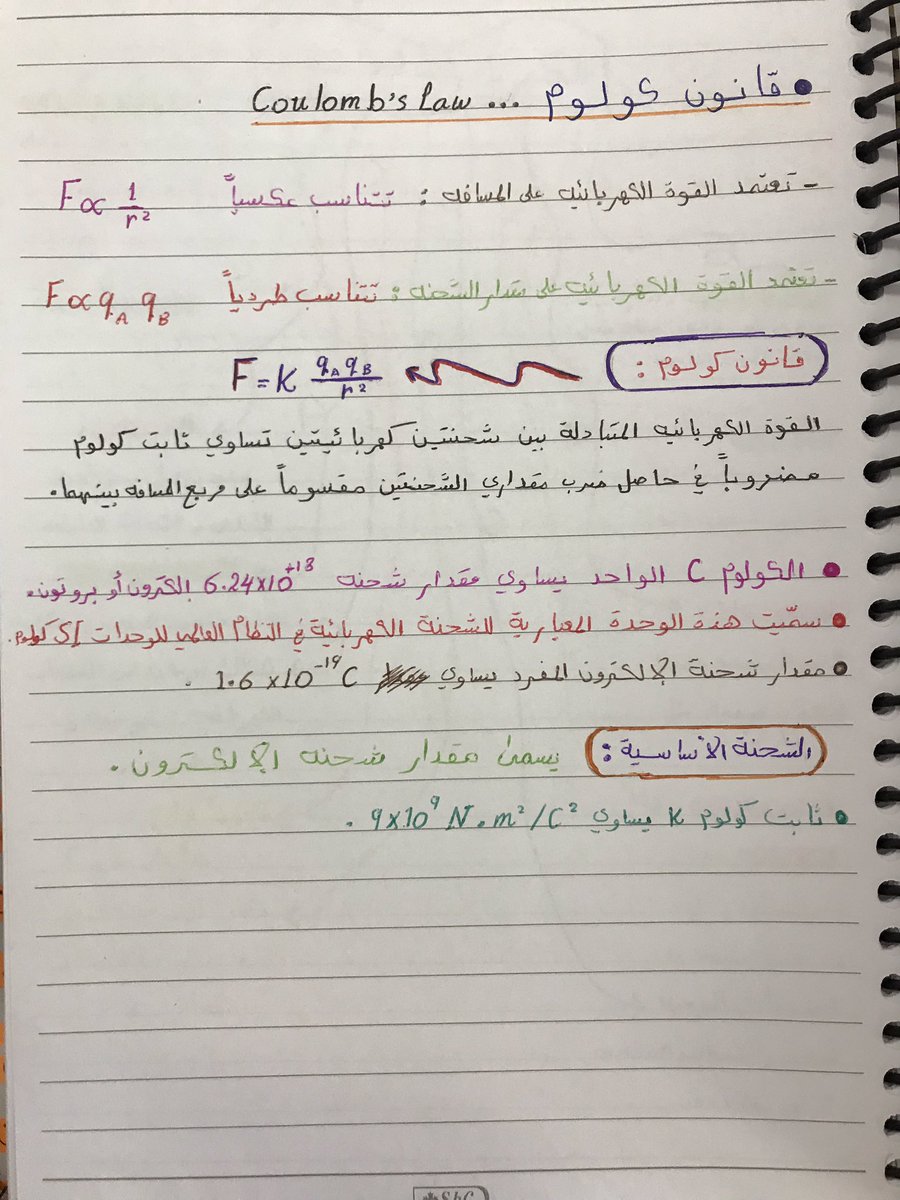 • قانون كولوم ... Coulomb's Law
- تعتمد القوة الكهربائيه على المسافه : تتناسب عكسياً F∝ 1/r²
- تعتمد القوة الكهربائيه على مقدار الشحنه : تتناسب طردياً F∝ q_A q_B
قانون كولوم : F = K q_A q_B / r²
القوة الكهربائيه المتبادلة بين شحنتين كهربائيتين تساوي ثابت كولوم
مضروباً في حاصل ضرب مقداري الشحنتين مقسوماً على مربع المسافه بينهما.
• الكولوم C الواحد يساوي مقدار شحنه 6.24x10⁺¹⁸ الكترون أو بروتون.
• سمّيت هذة الوحدة المعيارية للشحنة الكهربائية في النظام العالمي للوحدات SI كولوم.
• مقدار شحنة الإلكترون المفرد يساوي 1.6 x10⁻¹⁹ C .
الشحنة الأساسية : يسمى مقدار شحنه الإلكترون .
• ثابت كولوم K يساوي 9x10⁹ N.m²/C² .